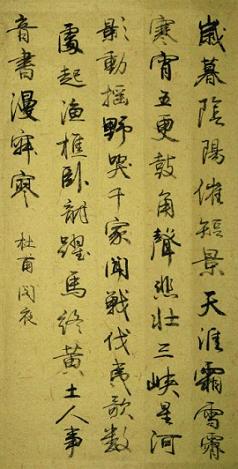 歲暮陰陽催短景天涯霜雪霽
寒宵五更鼓角聲悲壯三峽星河
影動摇野哭千家聞戰伐夷歌數
處起漁樵臥龍躍馬終黃土人事
音書漫寂寥 杜甫閣夜